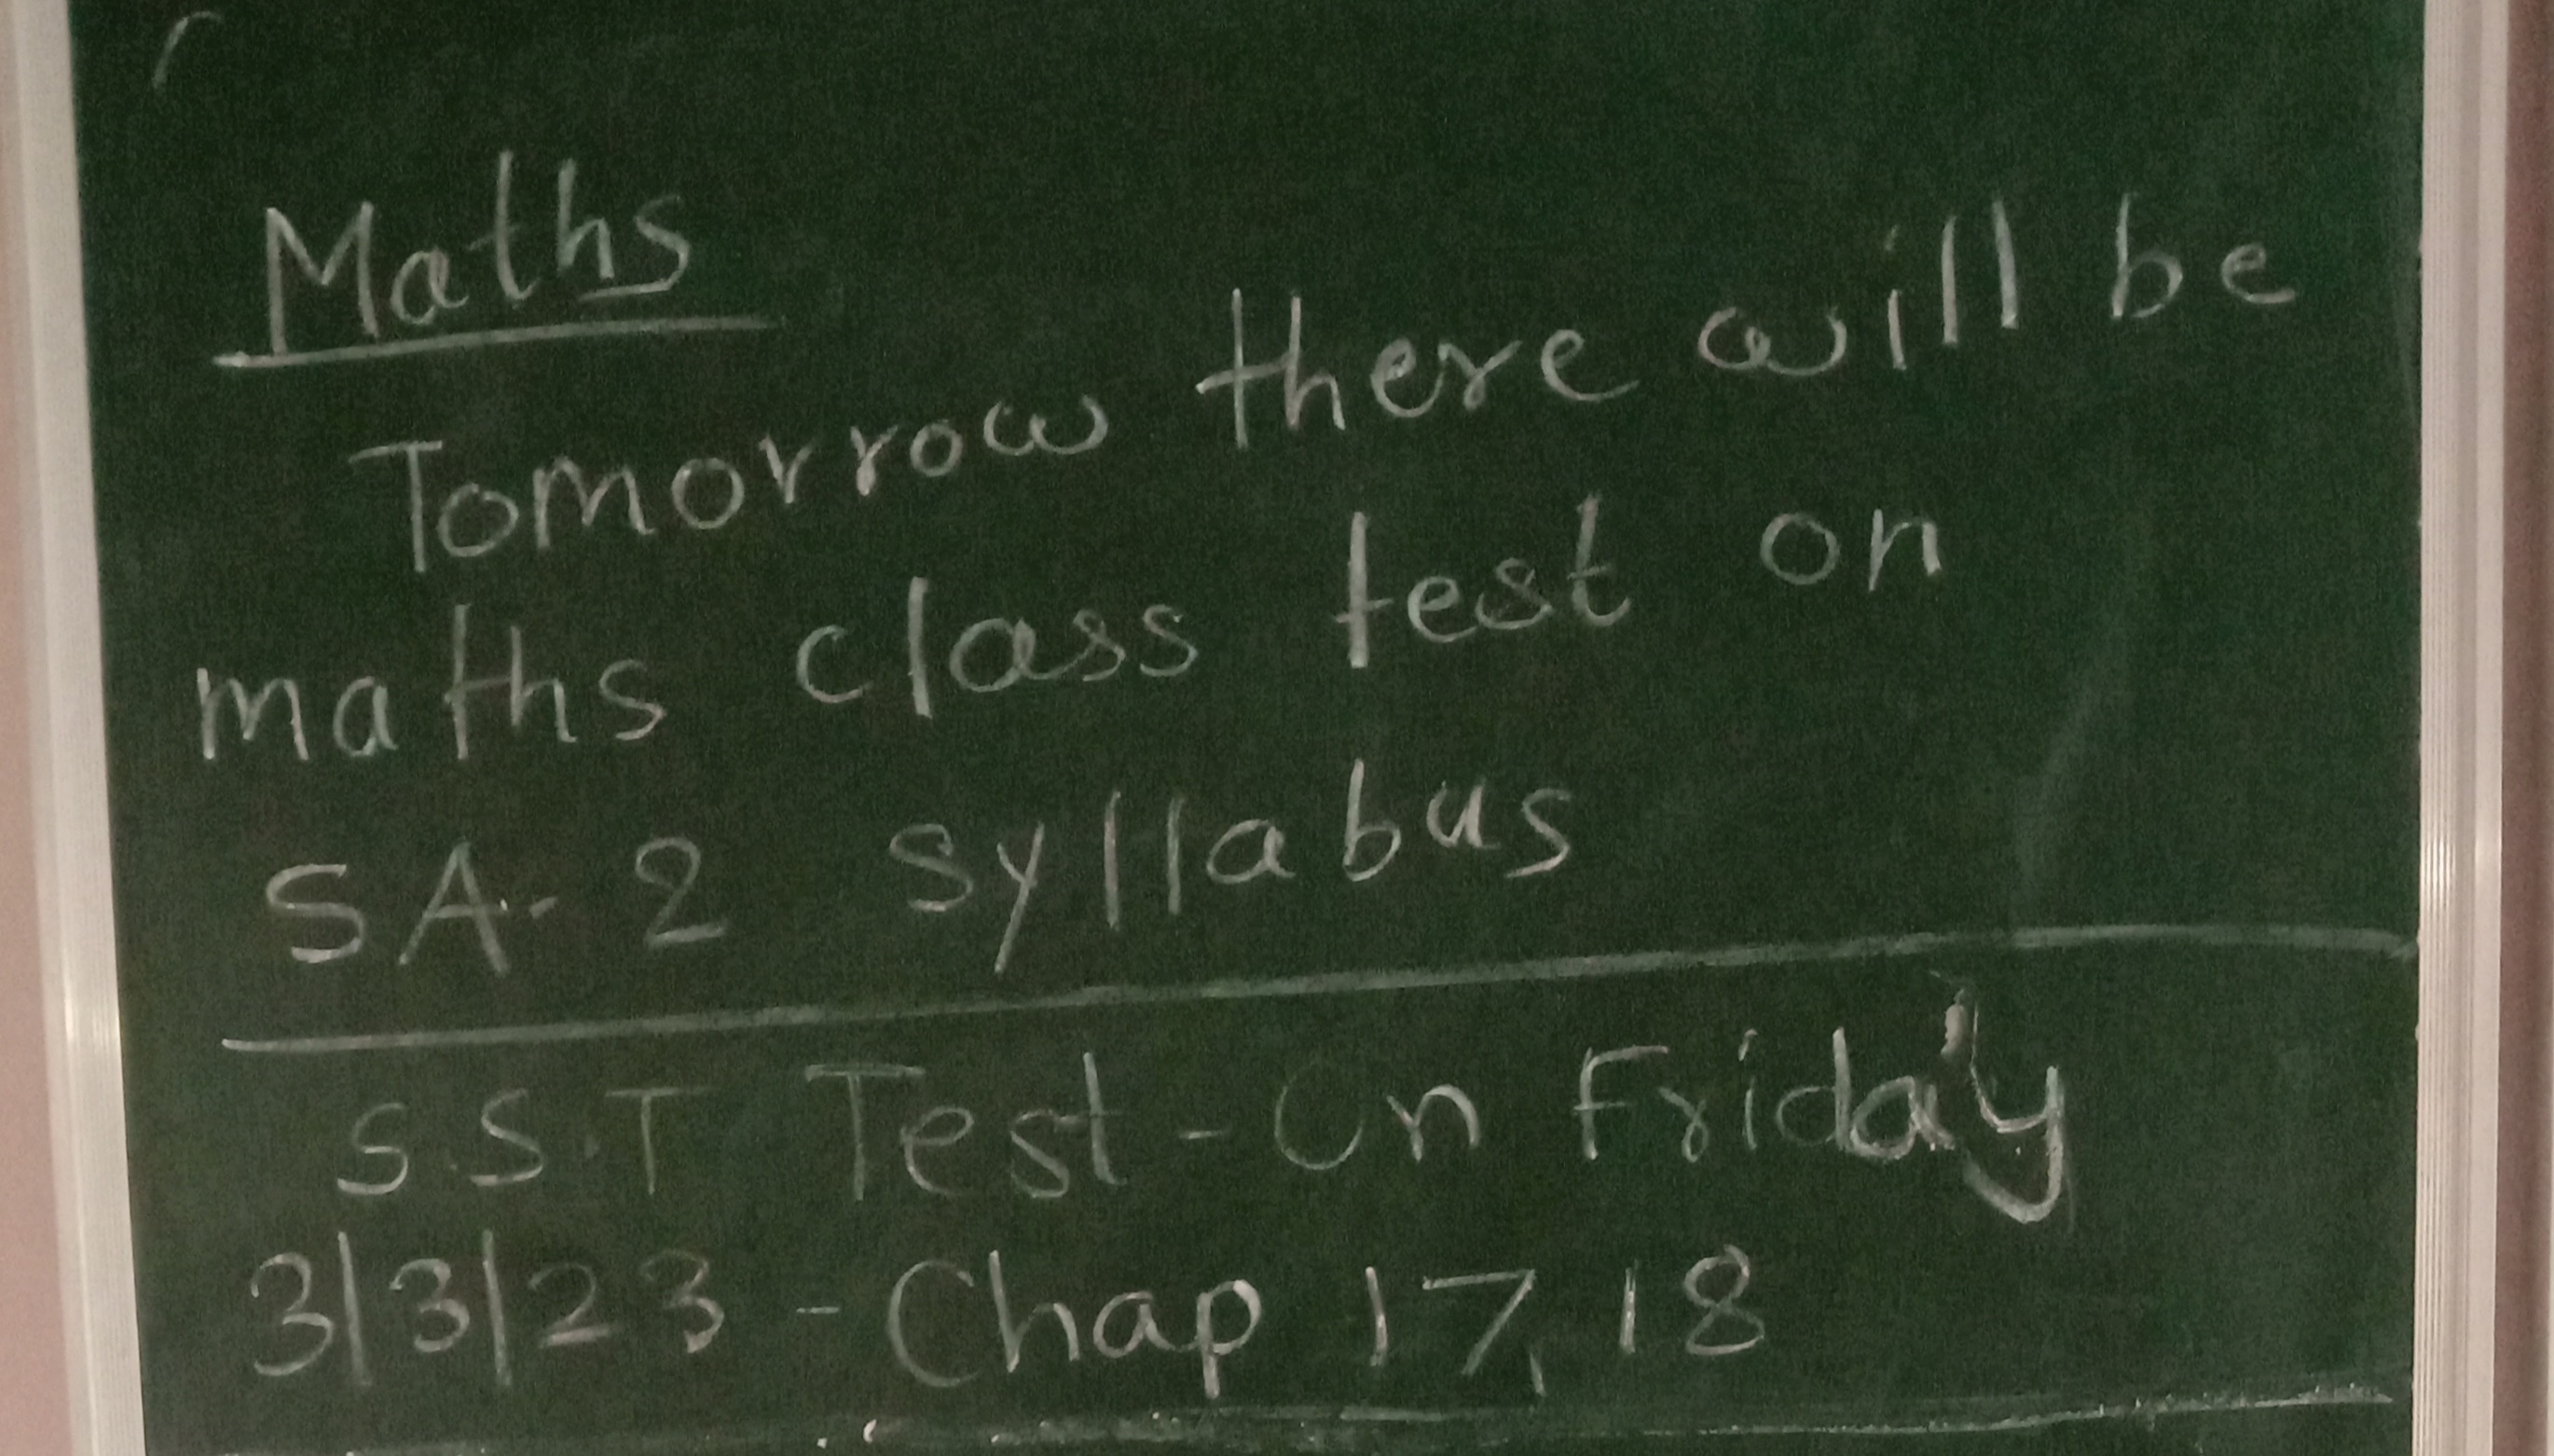 Maths
Tomorrow there will be
maths class test on
SA-2 syllabus
S.S.T Test - On Friday
3/3/23 - Chap 17, 18